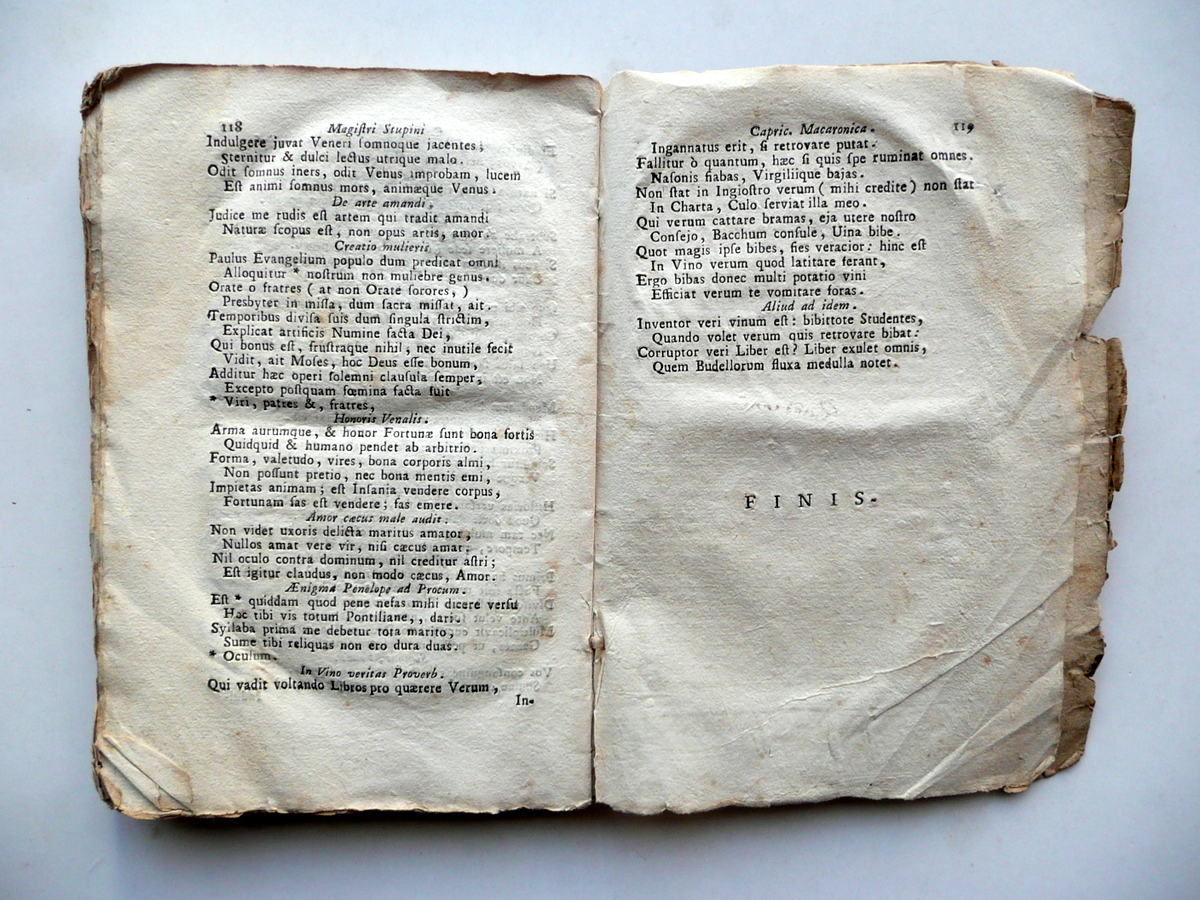 118 Magiſtri Stupini
Indulgere juvat Veneri ſomnoque jacentes;
Sternitur & dulci lectus utrique malo.
Odit ſomnus iners, odit Venus improbam, lucem
Eſt animi ſomnus mors, animæque Venus.
De arte amandi,
Judice me rudis eſt artem qui tradit amandi
Naturæ ſcopus eſt, non opus artis, amor.
Creatio mulieris
Paulus Evangelium populo dum predicat omni
Alloquitur * noſtrum non muliebre genus.
Orate o fratres ( at non Orate ſorores, )
Presbyter in miſſa, dum ſacra miſſat, ait.
Temporibus diviſa ſuis dum ſingula ſtrictim,
Explicat artificis Numine facta Dei,
Qui bonus eſt, fruſtraque nihil, nec inutile fecit
Vidit, ait Moſes, hoc Deus eſſe bonum,
Additur hæc operi ſolemni clauſula ſemper,
Excepto poſtquam fœmina facta fuit
* Viri, patres &, fratres,
Honoris Venalis.
Arma aurumque, & honor Fortunæ ſunt bona fortis
Quidquid & humano pendet ab arbitrio.
Forma, valetudo, vires, bona corporis almi,
Non poſſunt pretio, nec bona mentis emi,
Impietas animam; eſt Inſania vendere corpus,
Fortunam fas eſt vendere; fas emere.
Amor cæcus male audit.
Non videt uxoris delicta maritus amator,
Nullos amat vere vir, niſi cæcus amat;
Nil oculo contra dominum, nil creditur aſtri;
Eſt igitur claudus, non modo cæcus, Amor.
Ænigma Penelope ad Procum.
Eſt * quiddam quod pene nefas mihi dicere verſu
Hoc tibi vis totum Pontiliane,, dari.
Syllaba prima me debetur tota marito,
Sume tibi reliquas non ero dura duas.
* Oculum.
In Vino veritas Proverb.
Qui vadit voltando Libros pro quærere Verum,
In-
Capric. Macaronica. 119
Ingannatus erit, ſi retrovare putat.
Fallitur ò quantum, hæc ſi quis ſpe ruminat omnes.
Naſonis fiabas, Virgiliique bajas.
Non ſtat in Ingioſtro verum ( mihi credite ) non ſtat
In Charta, Culo ſerviat illa meo.
Qui verum cattare bramas, eja utere noſtro
Conſejo, Bacchum conſule, Uina bibe.
Quot magis ipſe bibes, fies veracior: hinc eſt
In Vino verum quod latitare ferant,
Ergo bibas donec multi potatio vini
Efficiat verum te vomitare foras.
Aliud ad idem.
Inventor veri vinum eſt: bibittote Studentes,
Quando volet verum quis retrovare bibat:
Corruptor veri Liber eſt? Liber exulet omnis,
Quem Budellorvm fluxa medulla notet.
FINIS.